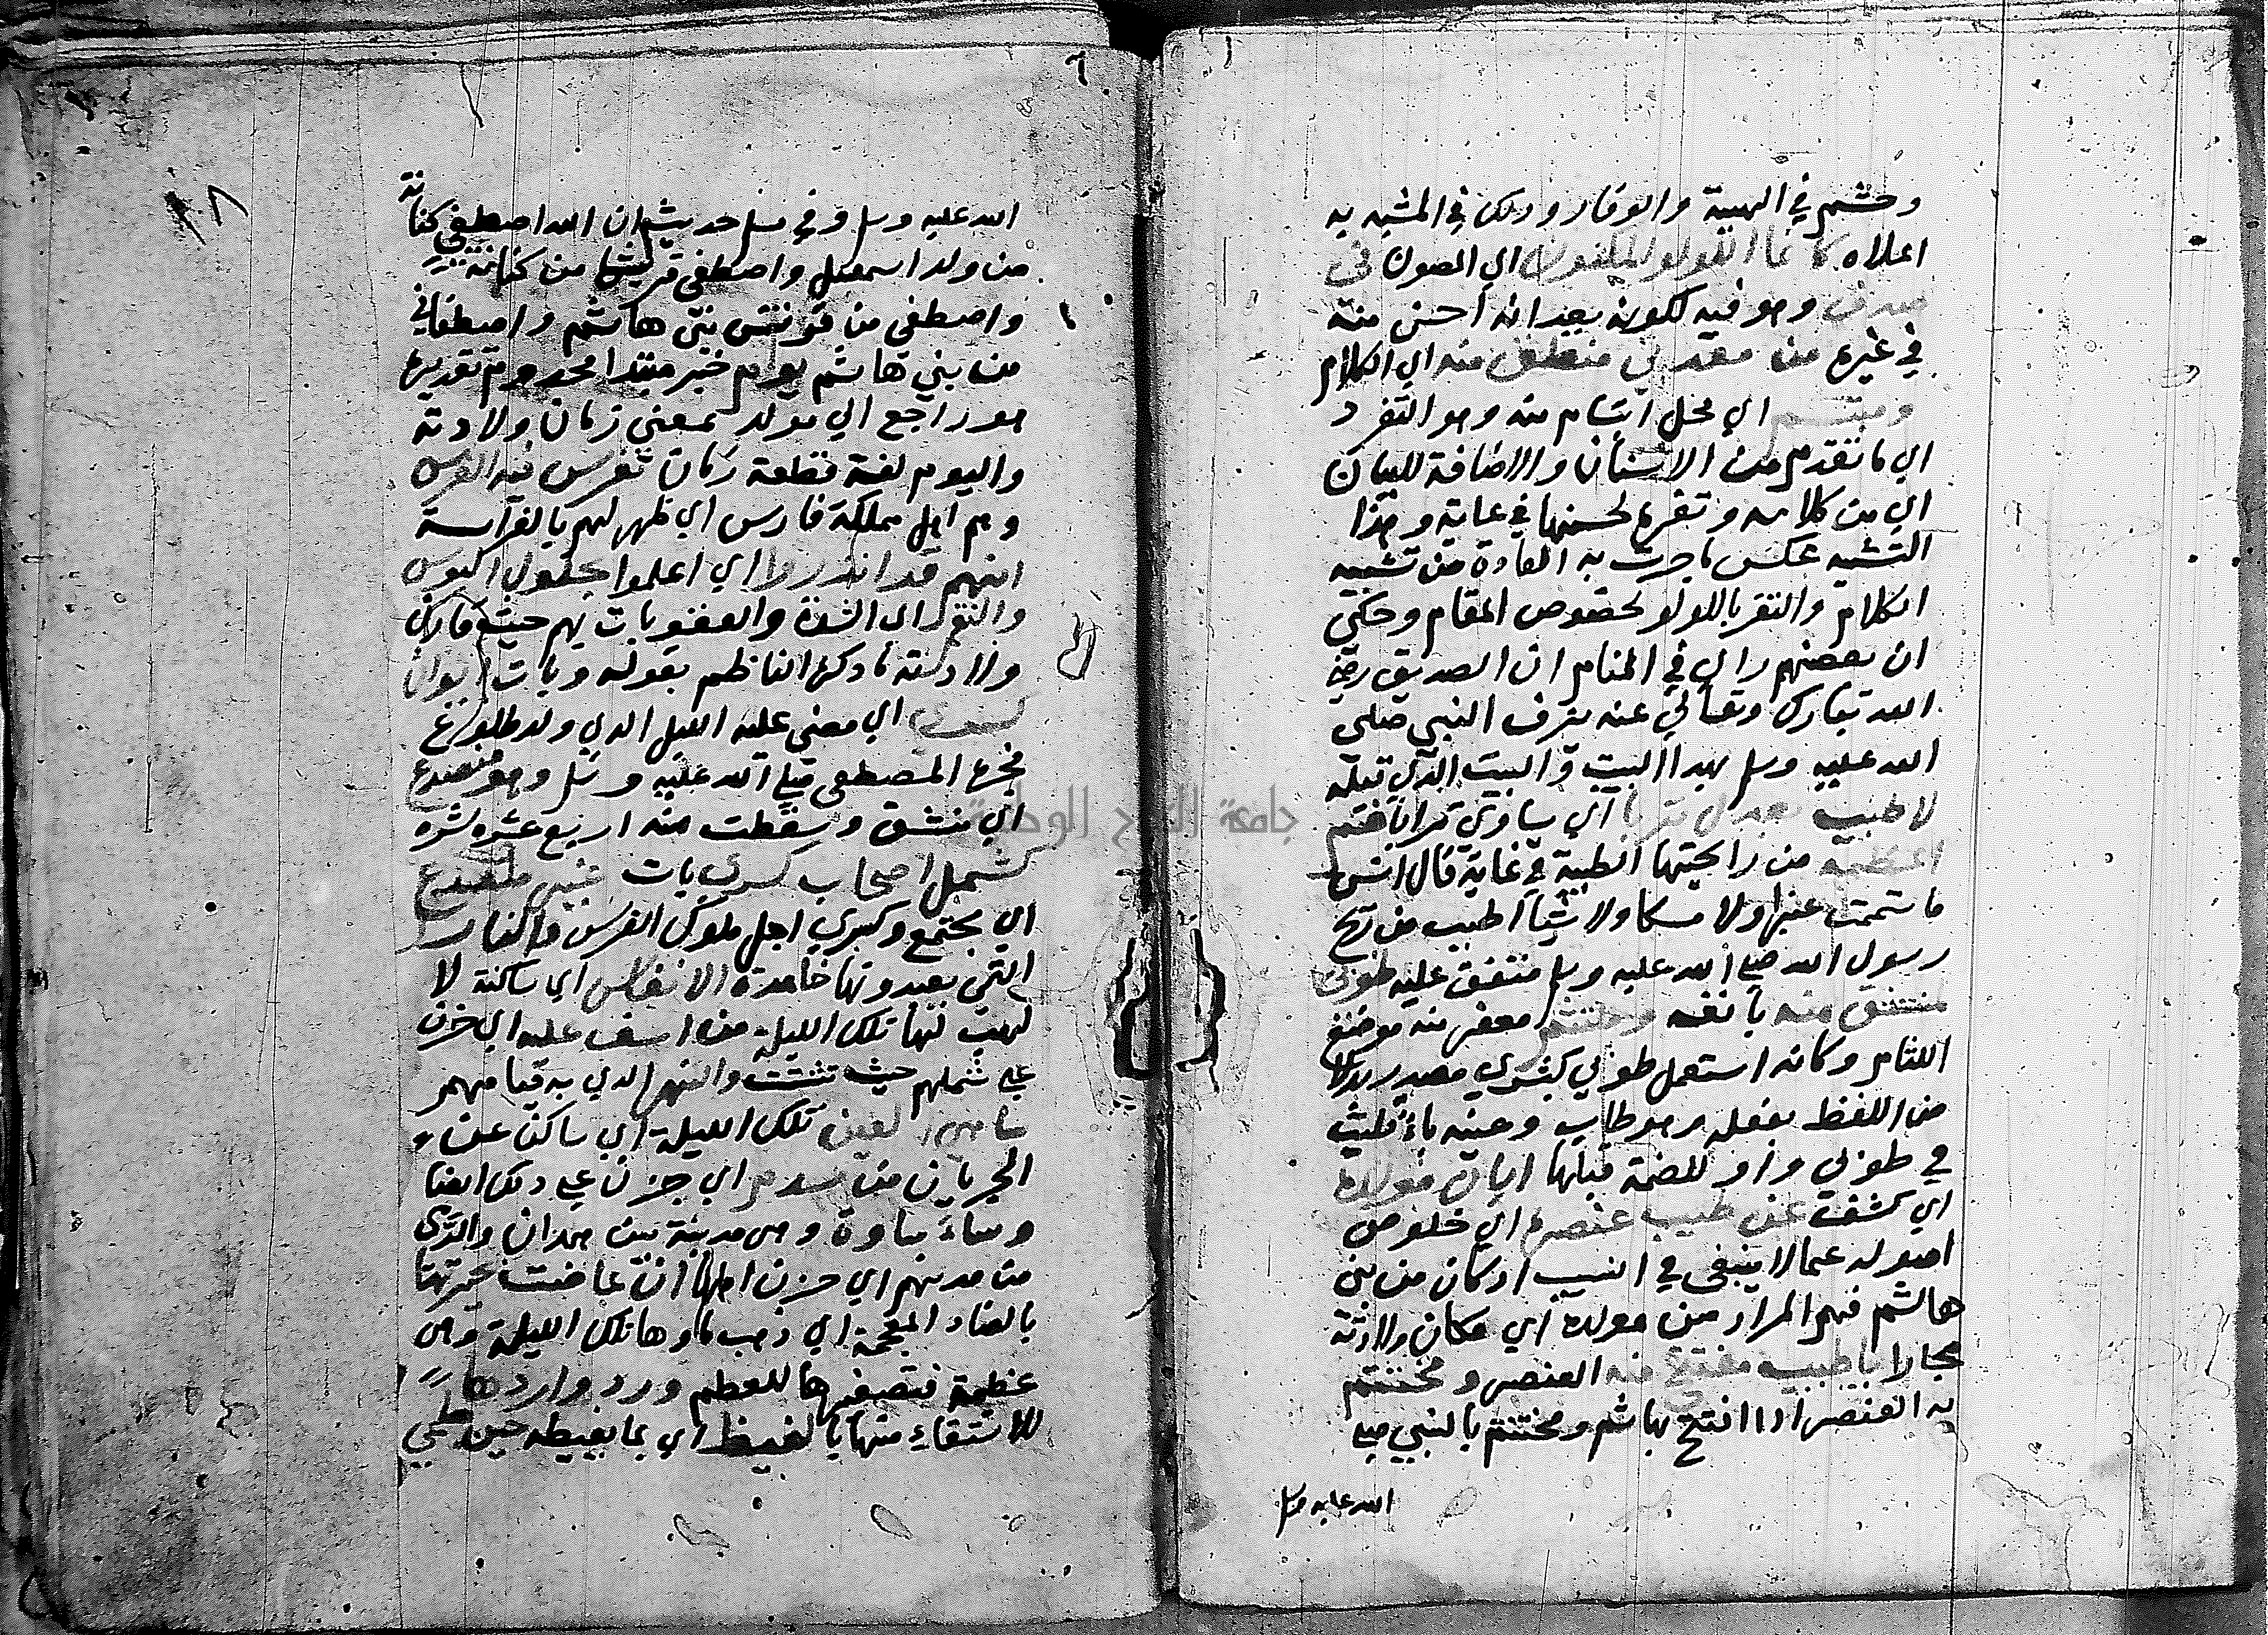 وحشم في الهيبة والوقار وذلك في المشبه به
اعلاه كانما اللولو المكنون اي المصون في
صدف وهو فيه لكونه بعدانه احسن منه
في غيره من معدني منطق منه اي الكلام
ومبتسم اي محل ابتسام منه وهو الثغر
اي ما تقدم من الاسنان والاضافة للبيان
اي من كلامه وثغره لحسنها في غاية وهذا
التشبيه عكس ما جرت به العادة من تشبيه
الكلام والثغر باللولو لخصوص المقام وحكي
ان بعضهم راي في المنام ان الصديق رضي
الله تبارك وتعالي عنه عرف النبي صلي
الله عليه وسلم بهذا البيت والبيت الذي قبله
لا طيب يعدل تربا اي يساوي ترابا ضم
اعظمه من رايحتها الطيبة في غاية قال انس
ما شممت عنبرا ولا مسكا ولا شيا اطيب من ريح
رسول الله صلي الله عليه وسلم متفق عليه طوبي
لمنتشق منه بانفه وملتثم معفر منه موضع
اللثام وكانه استعمل طوبي كبشري مصدر بدلا
من اللفظ بفعله وهو طاب وعينه ياء قلبت
في طوبي واو للضمة قبلها ابان مولده
اي كشف عن طيب عنصره اي خلوص
اصوله عما لا ينبغي في النسب اذ كان من بني
هاشم فهم المراد من مولده اي مكان ولادته
مجازا يا طيب مفتتح منه العنصر ومختتم
به العنصر اذا افتتح بهاشم ومختتم بالنبي صلي
الله عليه وسلم
٦
١٨
الله عليه وسلم وفي مسلم حديث ان الله اصطفي كنانة
من ولد اسمعيل واصطفي قريشا من كنانة
واصطفي من قريش بني هاشم واصطفاني
من بني هاشم يوم خبر مبتدا محذوف تقديره
هو راجع الي مولد بمعني زمان ولادته
واليوم لغة قطعة زمان تفرس فيه الفرس
وهم اهل مملكة فارس اي ظهر لهم بالفراسة
انهم قد انذروا اي اعلموا بحلول البوس
والنقم اي الشدة والعقوبات بهم حيث قارن
ولادته ما ذكره الناظم بقوله وبات ايوان
كسري اي مضي عليه الليل الذي ولد طلوع
فجره المصطفي صلي الله عليه وسلم وهو منصدع
اي منشق وسقطت منه اربع عشره شره
كشمل اصحاب كسري بات غير ملتيم
اي مجتمع وكسري اجل ملوك الفرس والنار
التي يعبدونها خامدة الانفاس اي ساكنة لا
لهب لها تلك الليلة من اسف عليه اي حزن
علي شملهم حيث تشتت والنهر الذي به قيامهم
ساهي العين تلك الليلة اي ساكن عن
الجريان من سدم اي حزن علي ذلك ايضا
وساء ساوة وهي مدينة بين همدان والري
من مدنهم اي حزن اهلها ان غاضت بحيرتها
بالضاد المعجمة اي ذهب ماوها تلك الليلة وهي
عظيمة فتصغيرها للعظم ورد واردها
للاستقاء منها بالغيظ اي بما يغيظه حين ظمي